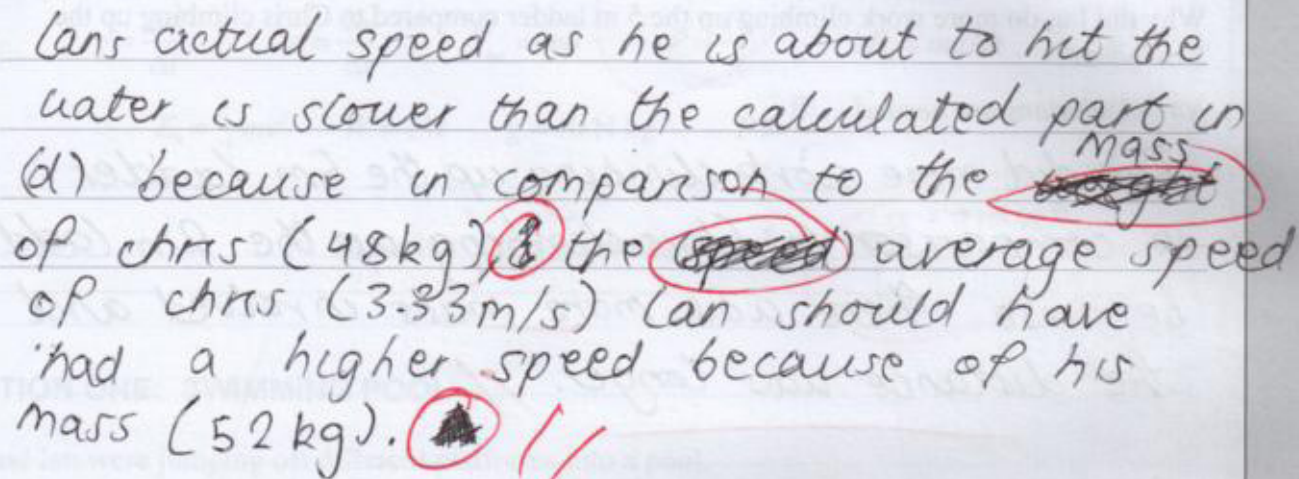 Ians actual speed as he is about to hit the
water is slower than the calculated part in
(d) because in comparison to the mass
of chris (48kg), the average speed
of chris (3.33m/s) Ian should have
had a higher speed because of his
mass (52kg).